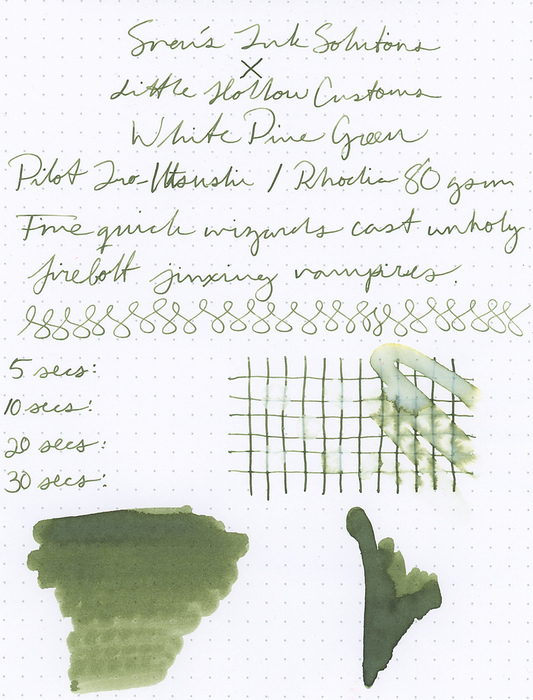 Sven's Ink Solutions
X
Little Hollow Customs
White Pine Green
Pilot Iro-Utsushi / Rhodia 80 gsm
Five quick wizards cast unholy
firebolt jinxing vampires.
5 secs:
10 secs:
20 secs:
30 secs: